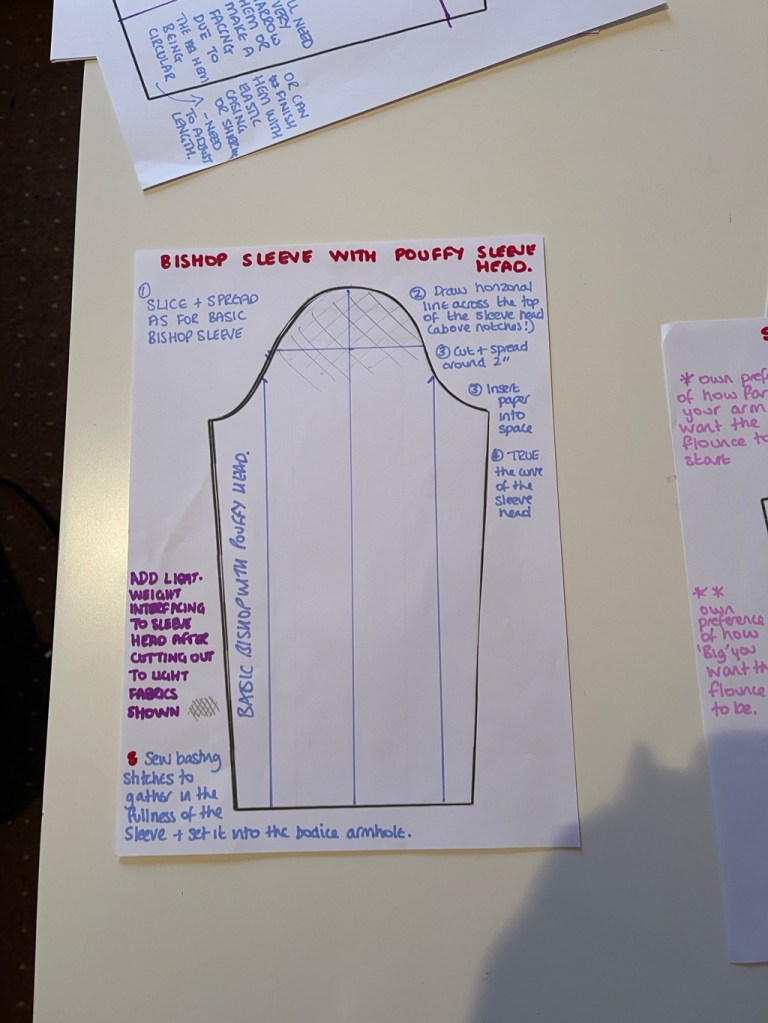 LL NEED
VERY
NARROW
HEM OR
MAKE A
FACING
DUE TO
THE HEM
BEING
CIRCULAR
OR CAN
FINISH
HEM WITH
ELASTIC
CASING
OR
- NEED
TO ADJUST
LENGTH.
BISHOP SLEEVE WITH POUFFY SLEEVE
HEAD.
①
SLICE + SPREAD
AS FOR BASIC
BISHOP SLEEVE
② Draw horizonal
line across the top
of the sleeve head
(above notches!)
③ Cut + spread
around 2"
③ Insert
paper
into
space
④ TRUE
the curve
of the
sleeve
head
BASIC BISHOP WITH POUFFY HEAD.
ADD LIGHT-
WEIGHT
INTERFACING
TO SLEEVE
HEAD AFTER
CUTTING OUT
TO LIGHT
FABRICS
SHOWN
5 Sew basting
stitches to
gather in the
fullness of the
sleeve + set it into the bodice armhole.
S
* own pref
of how far
your arm
want the
flounce to
start
* *
own
preference
of how
'Big' you
want th
flounce
to be.